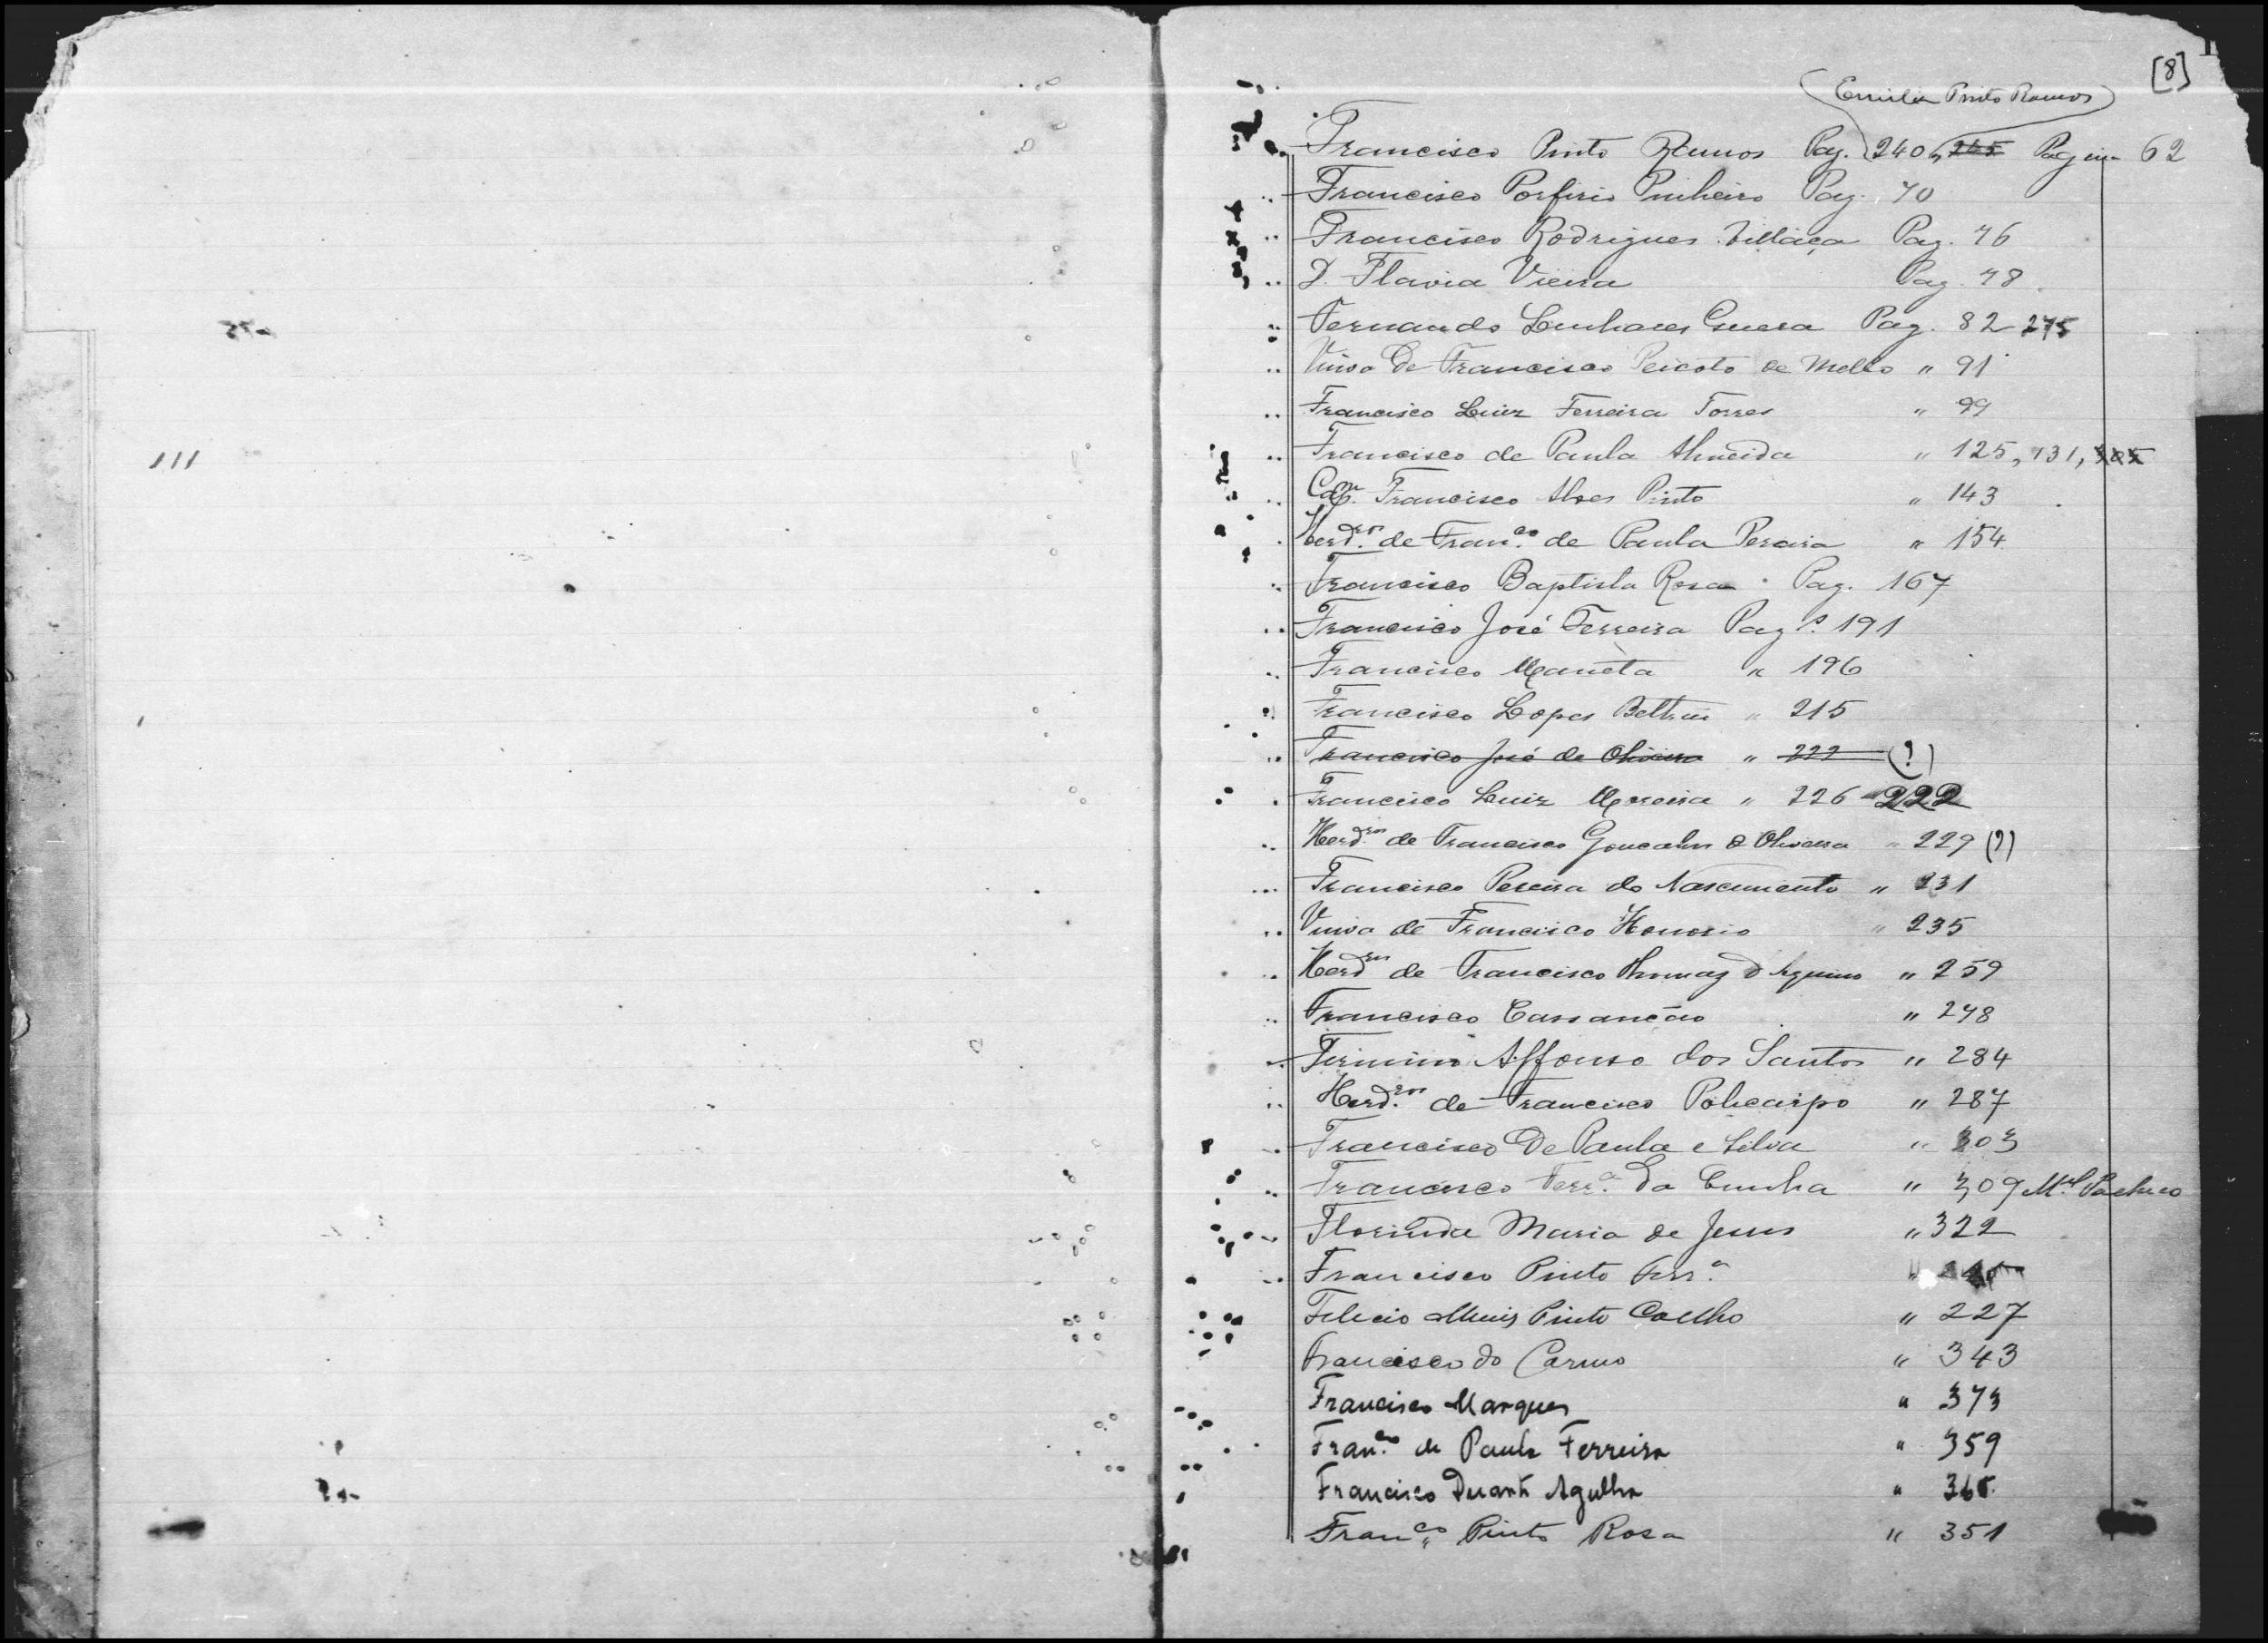 [8]
(Emilia Pinto Ramos)
Francisco Pinto Ramos Pag. 240, 245 Pagina 62
Francisco Porfirio Pinheiro Pag. 70
Francisco Rodrigues Villaça Pag. 76
D. Flavia Vieira Pag. 78
Fernando Linhares Guerra Pag. 82 275
Viuva de Francisco Peixoto de Mello " 91
Francisco Luiz Ferreira Torres " 99
Francisco de Paula Almeida " 125, 131,
111
Capm. Francisco Alves Pinto " 143
Herd.ros de Fran.co de Paula Pereira " 154
Francisco Baptista Rosa Pag. 167
Francisco José Ferreira Pag.s 191
Francisco Maneta " 196
Francisco Lopes " 215
Francisco José de Oliveira " 222 (?)
Francisco Luiz Moreira " 226 222
Herd.ros de Francisco Goncalves d Oliveira " 229 (?)
Francisco Pereira do Nascimento " 231
Viuva de Francisco Honorio " 235
Herd.ros de Francisco Thomaz d'Aquino " 259
Francisco Cassanção " 278
Firmino Affonso dos Santos " 284
Herd.ros de Francisco Policarpo " 287
Francisco De Paula e Silva " 303
Francisco Ferr.a da Cunha " 309 M.el Pacheco
Florinda Maria de Jesus " 322
Francisco Pinto Ferr.a "
Felicio Muniz Pinto Coelho " 227
Francisco do Carmo " 343
Francisco Marques " 373
Fran.co de Paula Ferreira " 359
Francisco Duarte Agulha "
Fran.co Pinto Rosa " 351